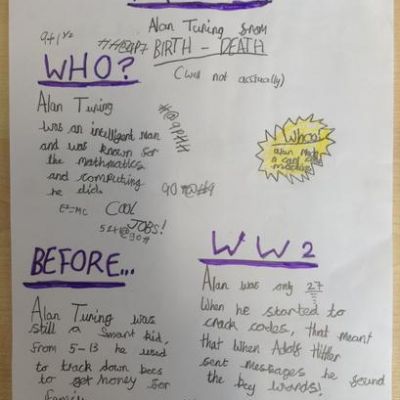 Alan Turing from
BIRTH - DEATH
(well not actually)
WHO?
Alan Turing
was an intelligent man
and was known for
the mathmatics
and computing
he did.
E²=MC
COOL
JOBS!
Whoa!
BEFORE...
Alan Turing was
still a smart kid,
from 5-13 he used
to track down bees
to get money for
family
WW2
Alan was only 27
When he started to
crack codes, that meant
that When Adolf Hitler
sent messages he found
the key words!